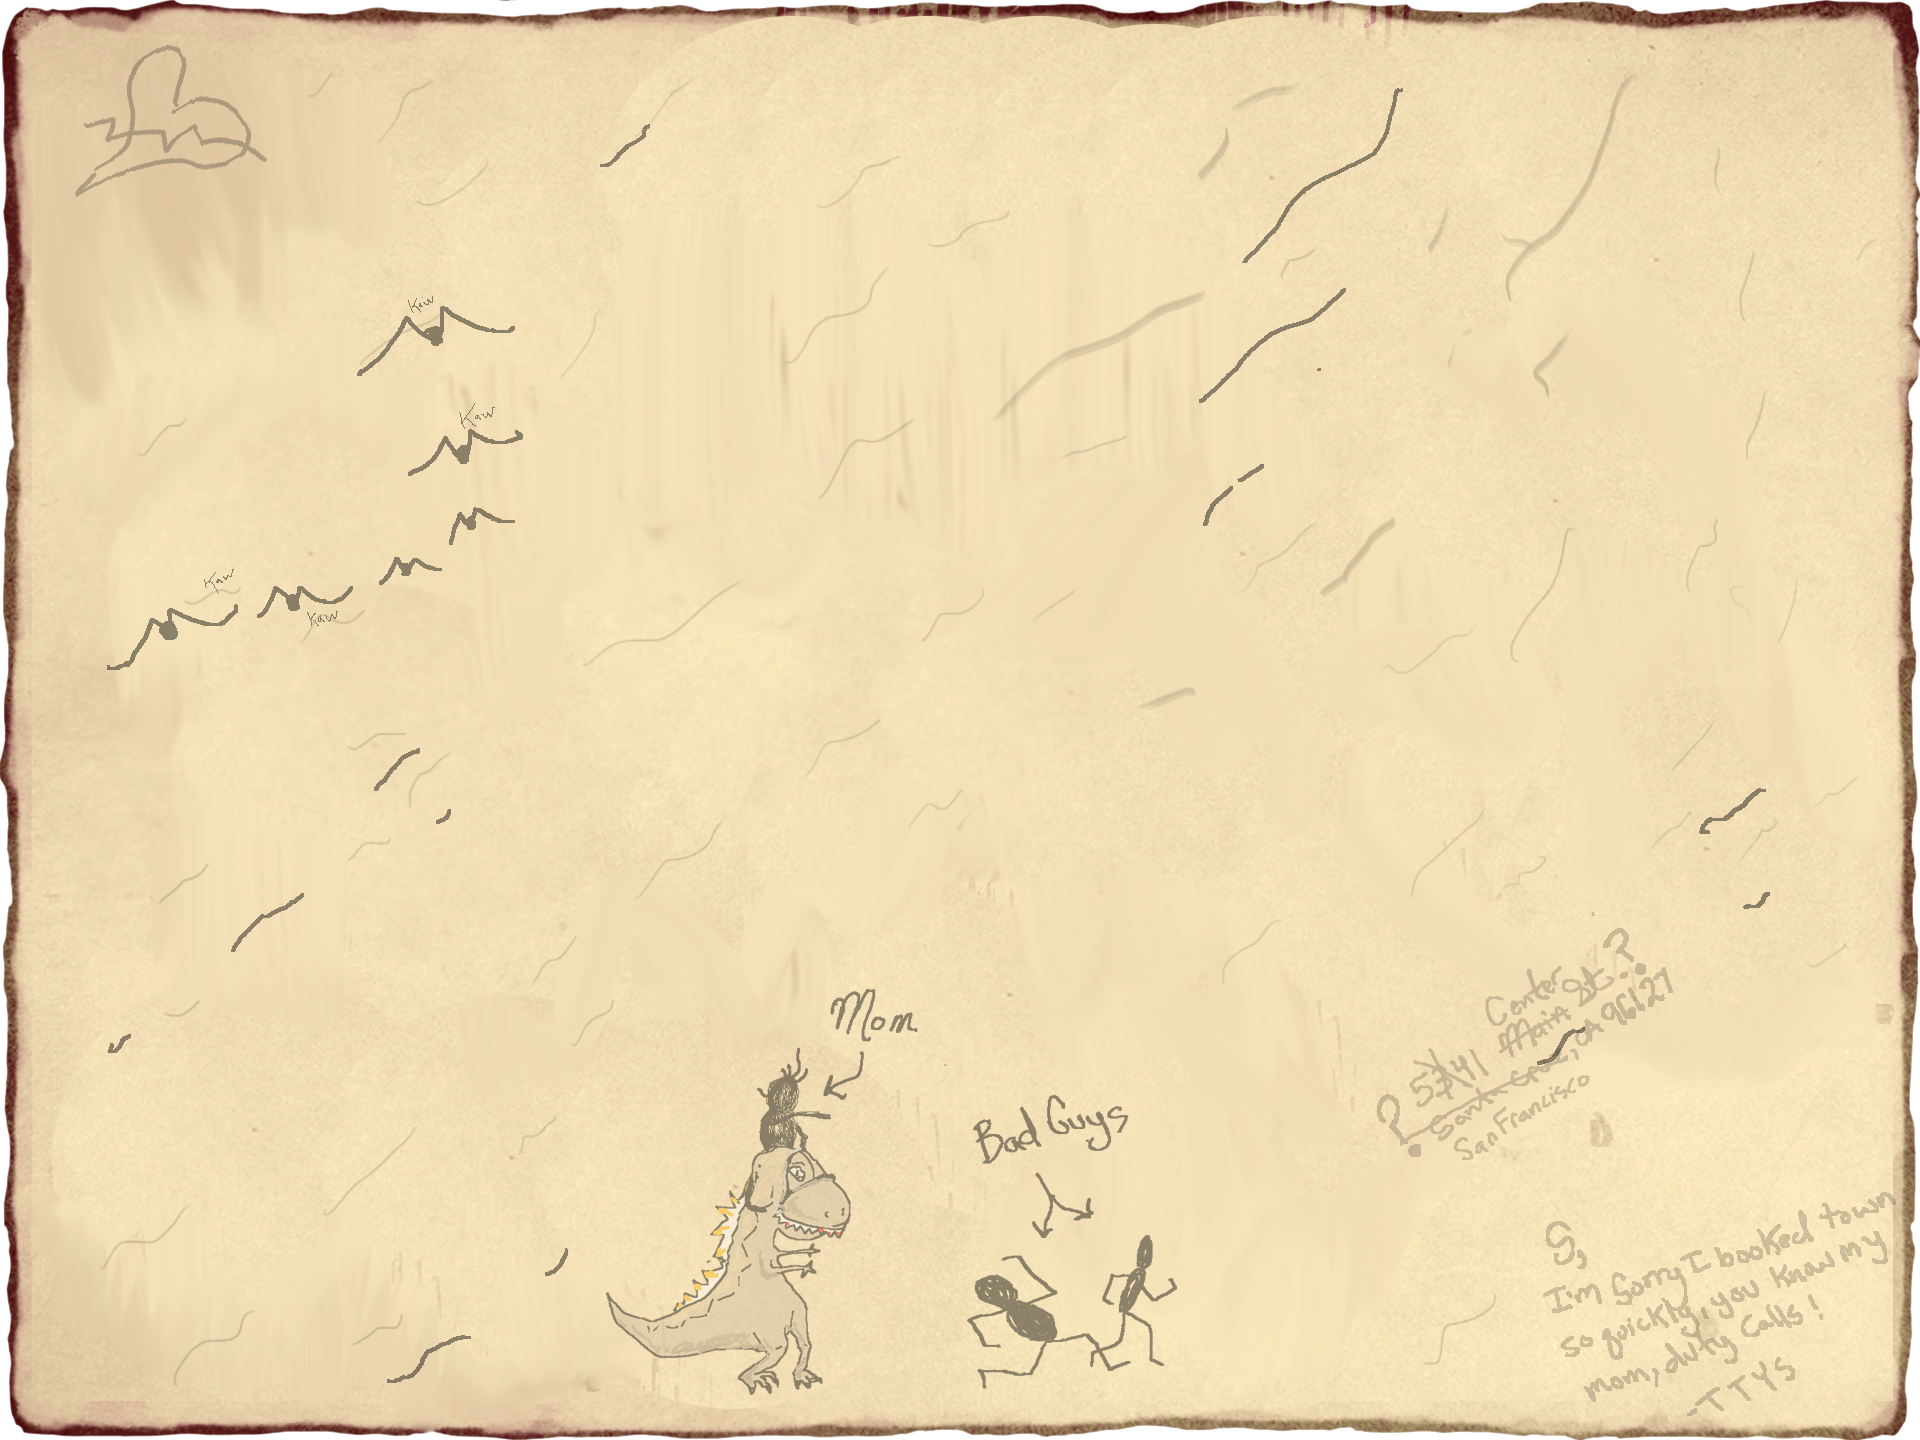 Kaw
Kaw
Kaw
Kaw
Mom
Bad Guys
Center
? 5741 Main St. ?
Santa Cruz, CA 96127
San Francisco
S,
I'm Sorry I booked town
so quickly, you know my
mom, duty calls!
-TTYS